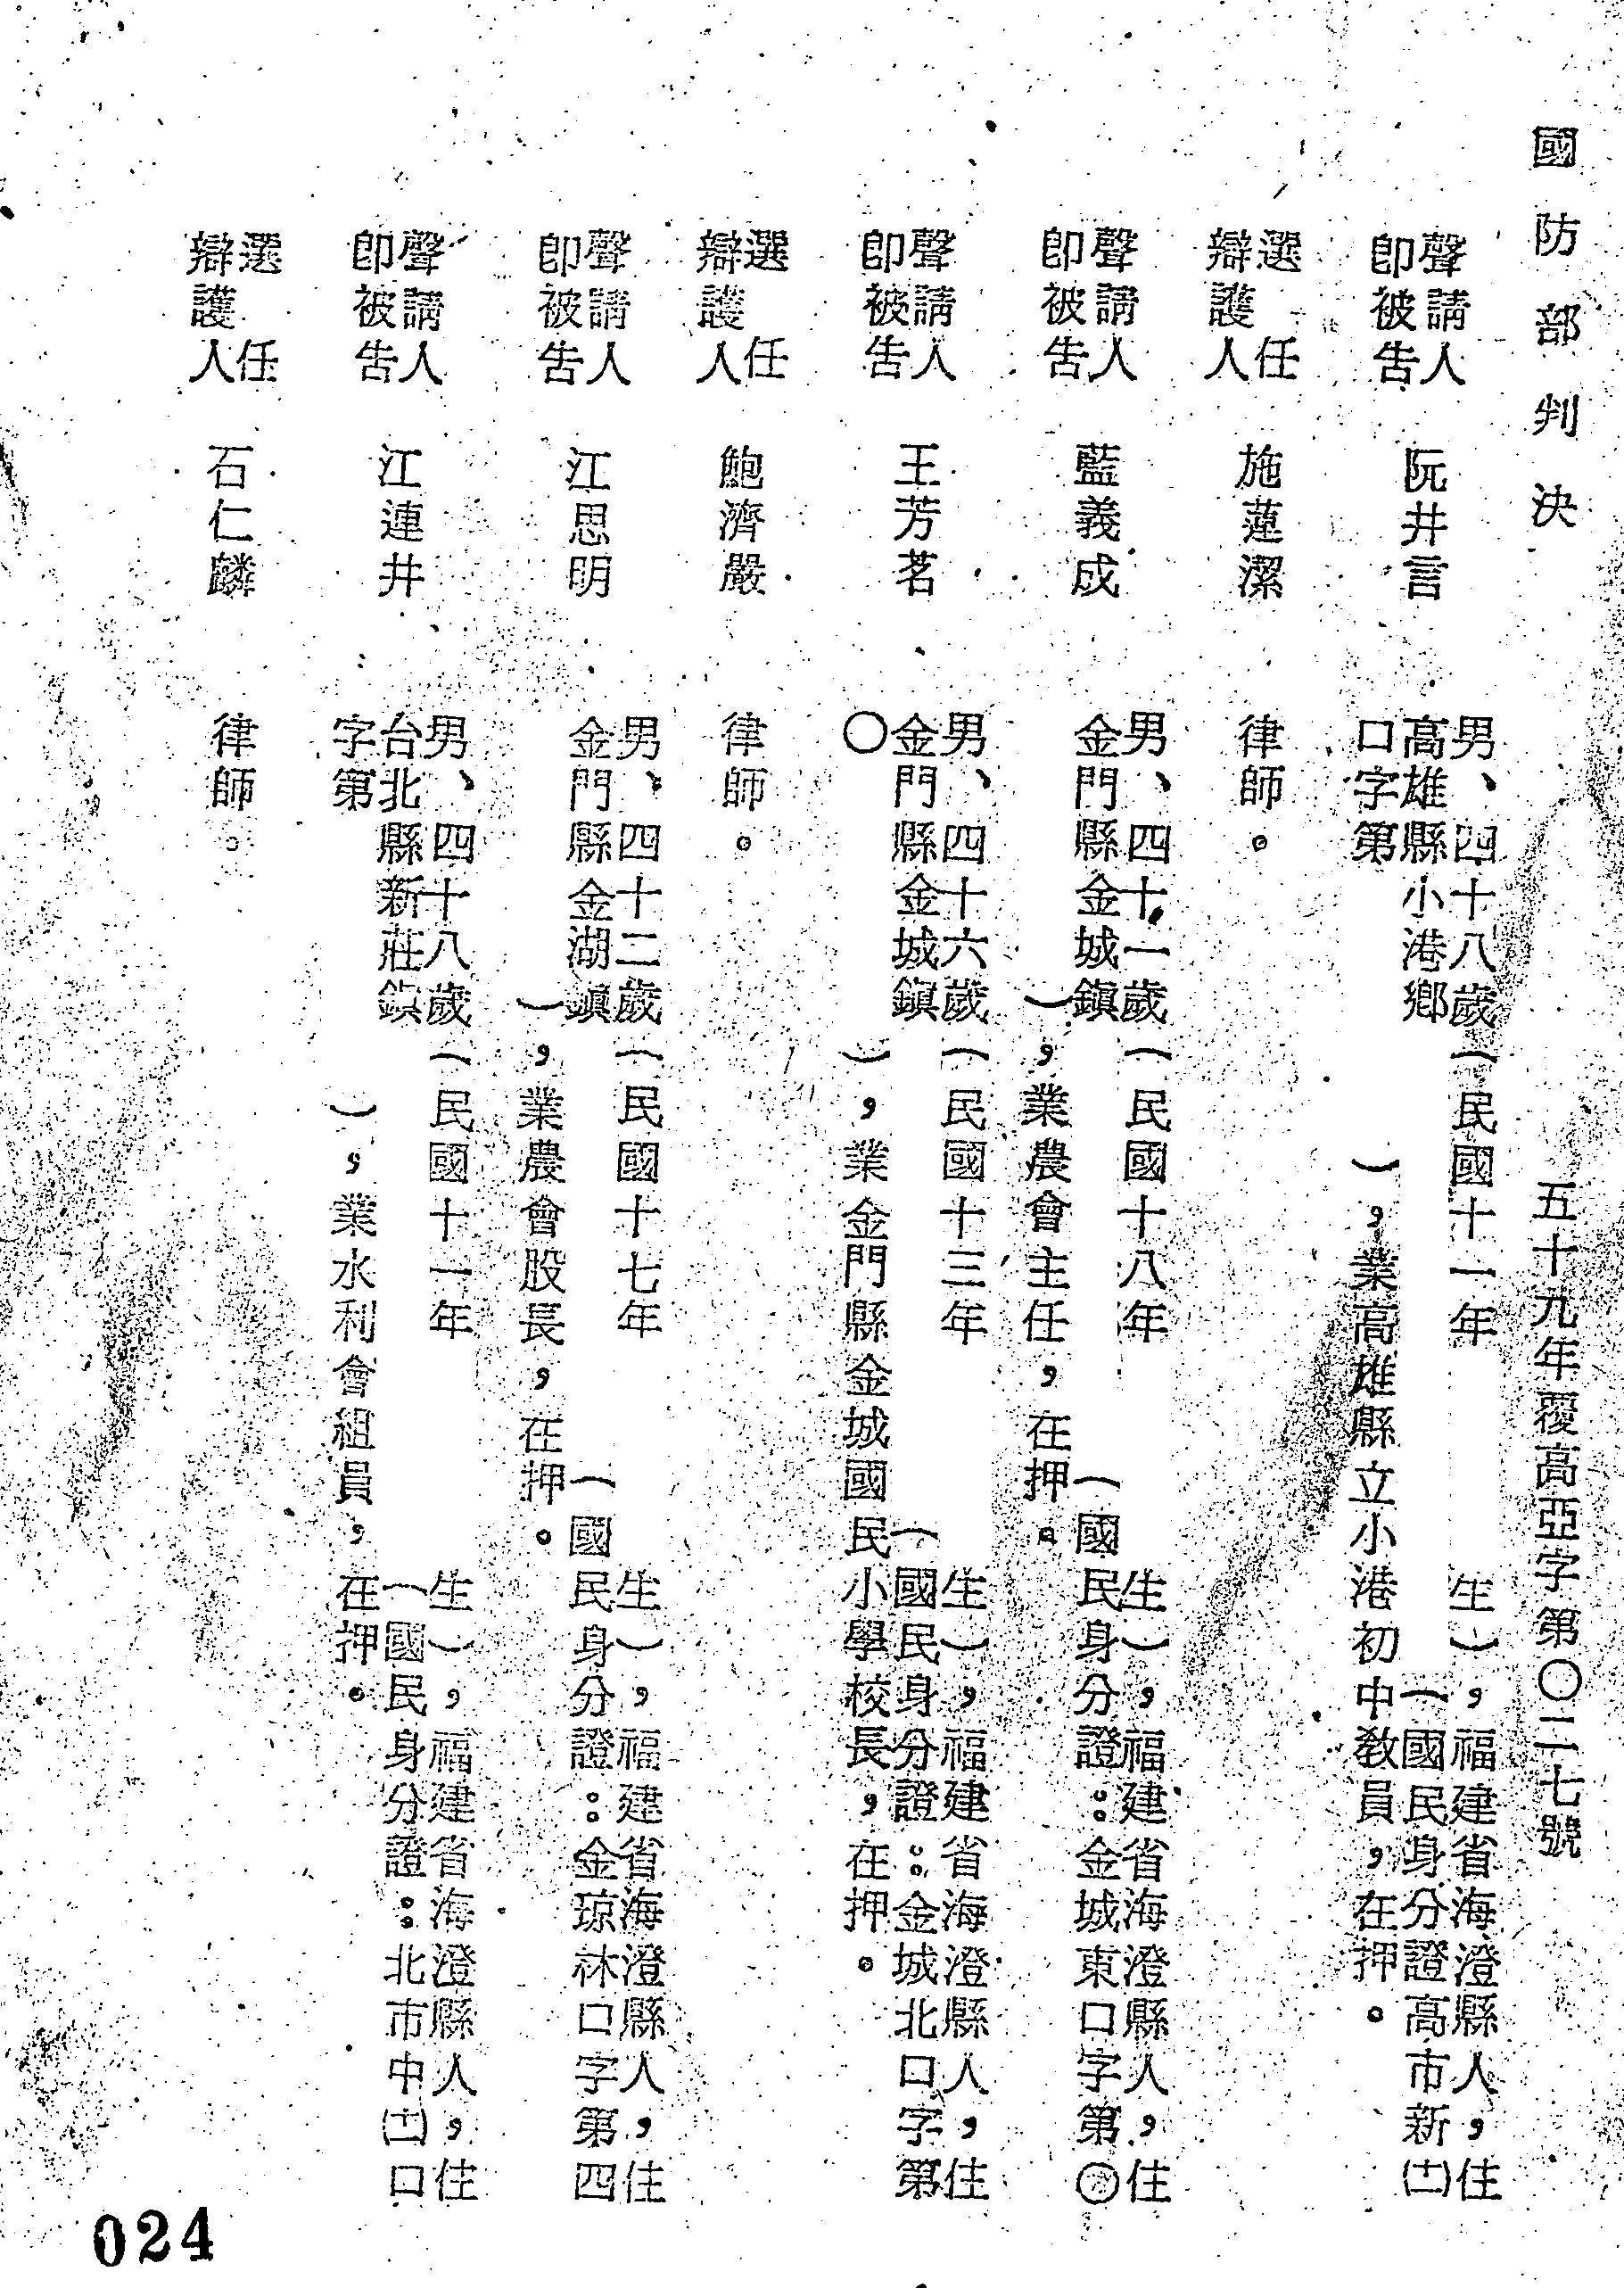 國防部判決　五十九年覆高亞字第〇二七號
聲請人
即被告　阮井言　男、四十八歲（民國十一年　生），福建省海澄縣人，住
高雄縣小港鄉　（國民身分證高市新㈩口字第　），業高雄縣立小港初中教員，在押。
選任
辯護人　施蓮潔　律師。
聲請人
即被告　藍義成　男、四十一歲（民國十八年　生），福建省海澄縣人，住
金門縣金城鎮　（國民身分證：金城東口字第〇
），業農會主任，在押。
聲請人
即被告　王芳茗　男、四十六歲（民國十三年　生），福建省海澄縣人，住
金門縣金城鎮　（國民身分證：金城北口字第
〇　），業金門縣金城國民小學校長，在押。
選任
辯護人　鮑濟嚴　律師。
聲請人
即被告　江思明　男、四十二歲（民國十七年　生），福建省海澄縣人，住
金門縣金湖鎮　（國民身分證：金琼林口字第四
），業農會股長，在押。
聲請人
即被告　江連井　男、四十八歲（民國十一年　生），福建省海澄縣人，住
台北縣新莊鎮　（國民身分證：北市中㈩口
字第　），業水利會組員，在押。
選任
辯護人　石仁麟　律師。
024